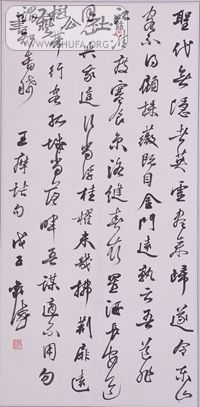 聖代無隱者英靈盡來歸遂令東山
客不得顧採薇既至金門遠孰云吾道非
江淮度寒食京洛縫春衣置酒長安道
同心與我違行當浮桂棹未幾拂荊扉遠
樹帶行客孤城當落暉吾謀適不用勿
謂知音稀
王摩詰句
SHUFA.ORG